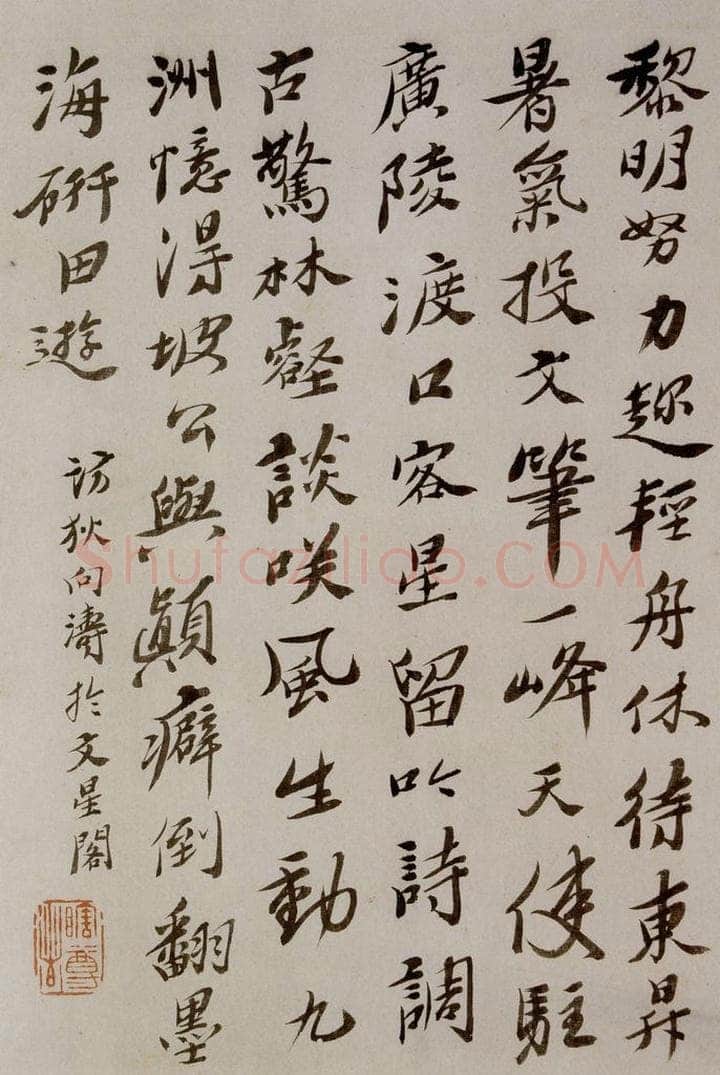 黎明努力趂輕舟休待東昇
暑氣投文筆一峰天使駐
廣陵渡口客星留吟詩調
古驚林壑談咲風生動九
洲憶得坡公與顛癖倒翻墨
海硏田遊
訪狄向濤於文星閣
Shufaziliao.COM